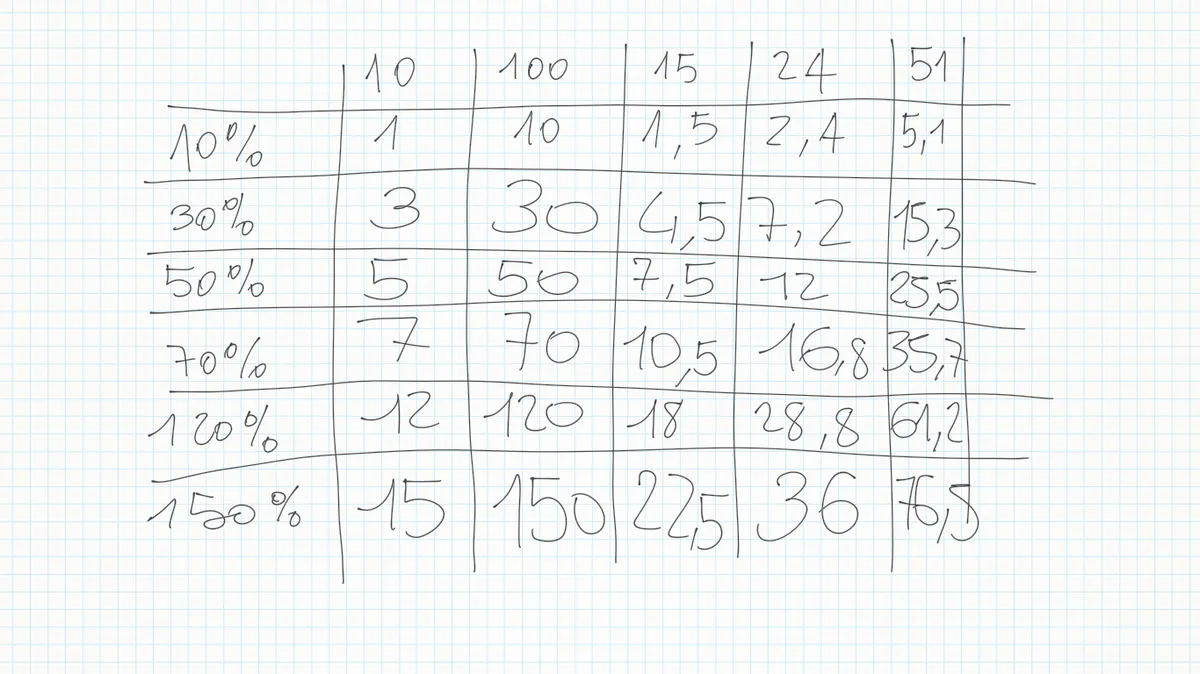 10 100 15 24 51
10% 1 10 1,5 2,4 5,1
30% 3 30 4,5 7,2 15,3
50% 5 50 7,5 12 25,5
70% 7 70 10,5 16,8 35,7
120% 12 120 18 28,8 61,2
150% 15 150 22,5 36 76,5